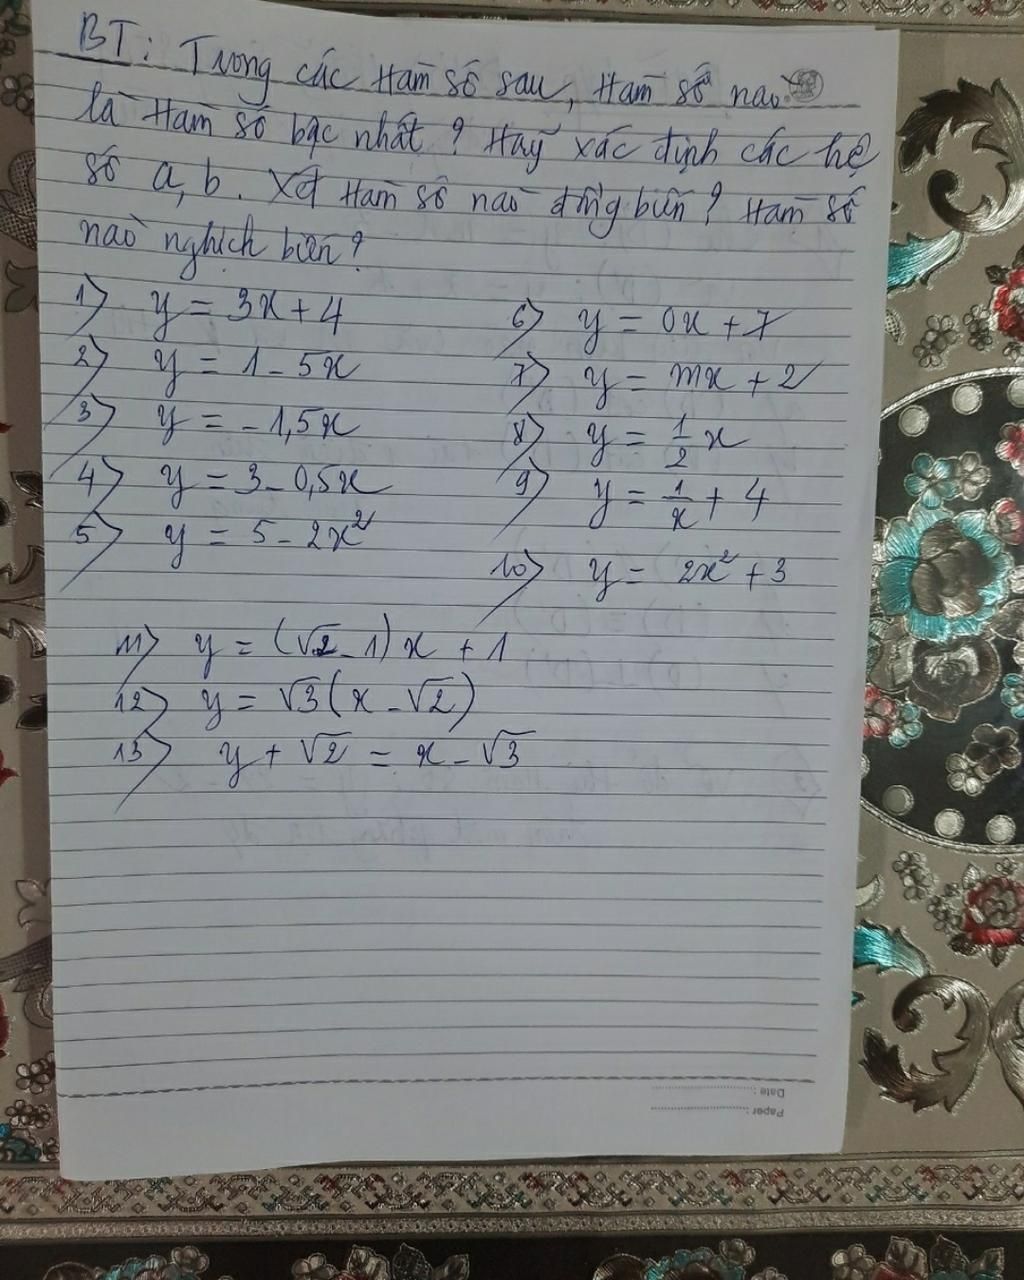 BT: Trong các Hàm số sau, Hàm số nào
là Hàm số bậc nhất? Hãy xác định các hệ
số a, b. Xét Hàm số nào đồng biến? Hàm số
nào nghịch biến?
1) y = 3x + 4
2) y = 1 - 5x
3) y = -1,5x
4) y = 3 - 0,5x
5) y = 5 - 2x²
6) y = 0x + 7
7) y = mx + 2
8) y = 1/2 x
9) y = 1/x + 4
10) y = 2x² + 3
11) y = (√2 - 1)x + 1
12) y = √3(x - √2)
13) y + √2 = x - √3
Date :
Paper :